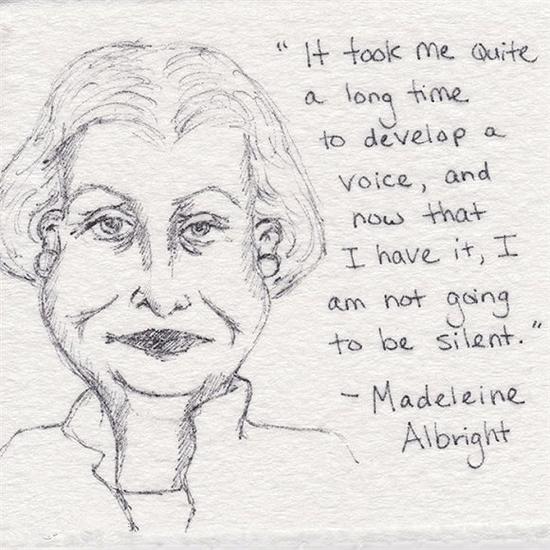 "It took me quite
a long time
to develop a
voice, and
now that
I have it, I
am not going
to be silent."
- Madeleine
Albright